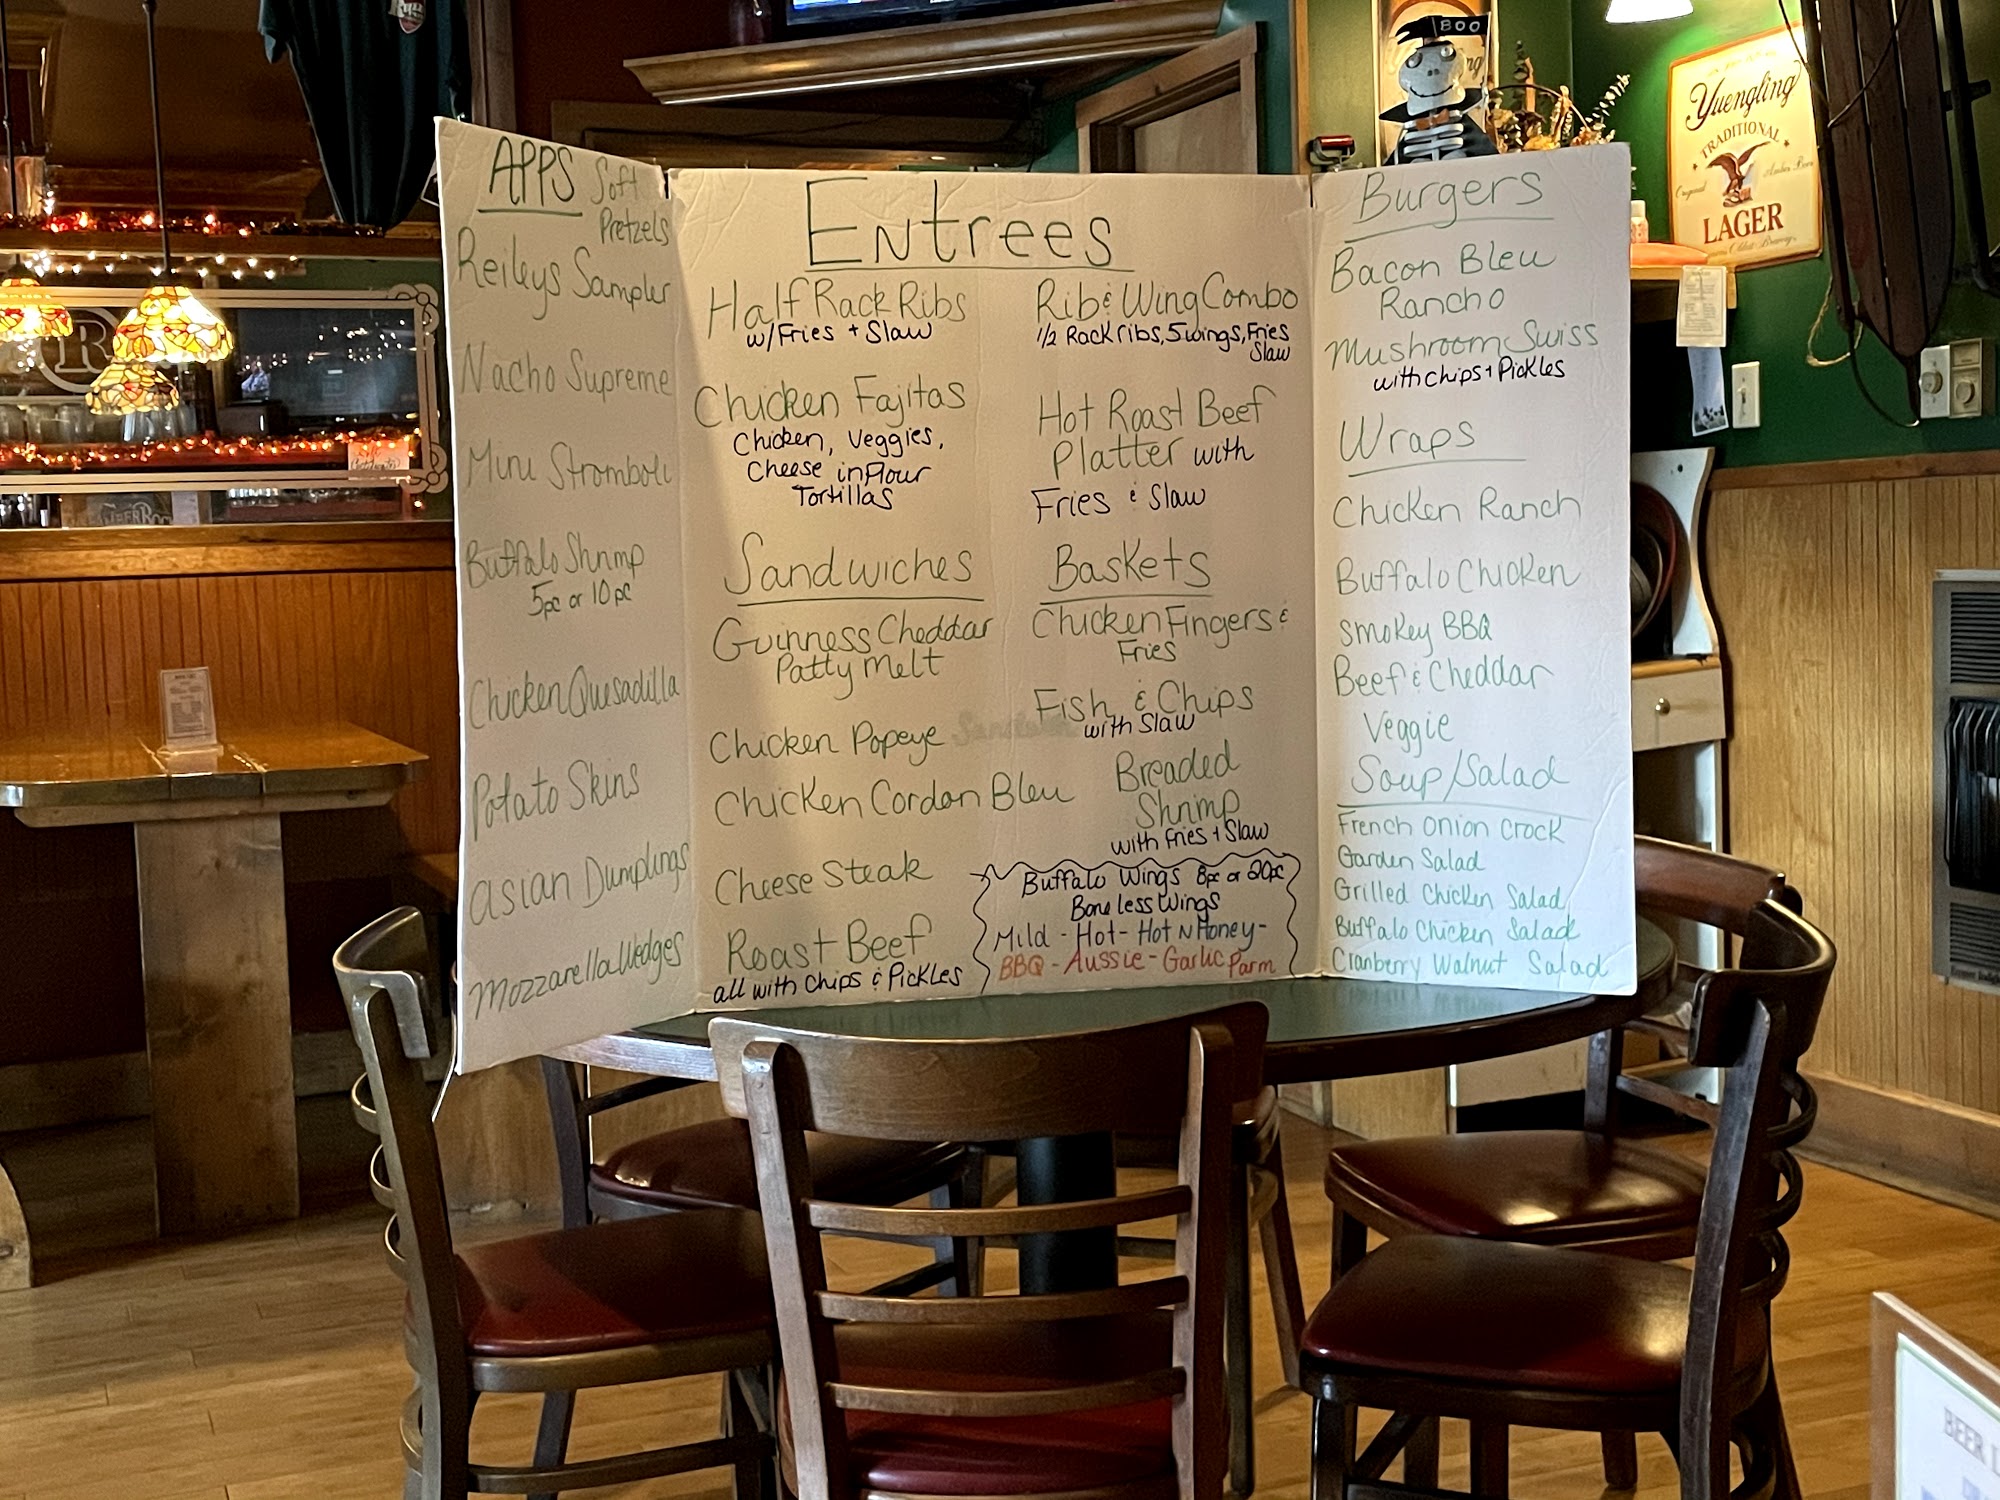 APPS Soft
Pretzels
Reileys Sampler
Nacho Supreme
Mini Stromboli
Buffalo Shrimp
5pc or 10pc
Chicken Quesadilla
Potato Skins
Asian Dumplings
Mozzarella Wedges
Entrees
Half Rack Ribs
w/ Fries + Slaw
Chicken Fajitas
Chicken, Veggies,
Cheese in Flour
Tortillas
Sandwiches
Guinness Cheddar
Patty Melt
Chicken Popeye
Chicken Cordon Bleu
Cheese Steak
Roast Beef
all with Chips & Pickles
Rib & Wing Combo
1/2 Rack ribs, 5 wings, Fries
Slaw
Hot Roast Beef
Platter with
Fries & Slaw
Baskets
Chicken Fingers &
Fries
Fish & Chips
with Slaw
Breaded
Shrimp
with Fries + Slaw
Buffalo Wings 8pc or 20pc
Boneless Wings
Mild - Hot - Hot N Honey -
BBQ - Aussie - Garlic Parm
Burgers
Bacon Bleu
Rancho
Mushroom Swiss
with chips + Pickles
Wraps
Chicken Ranch
Buffalo Chicken
Smokey BBQ
Beef & Cheddar
Veggie
Soup/Salad
French Onion Crock
Garden Salad
Grilled Chicken Salad
Buffalo Chicken Salad
Cranberry Walnut Salad
BOO
Yuengling
TRADITIONAL
Original
Amber Beer
LAGER
R
BEER